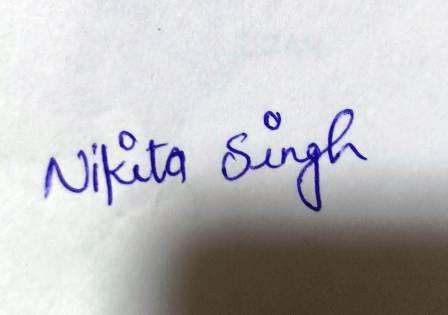 Nikita Singh